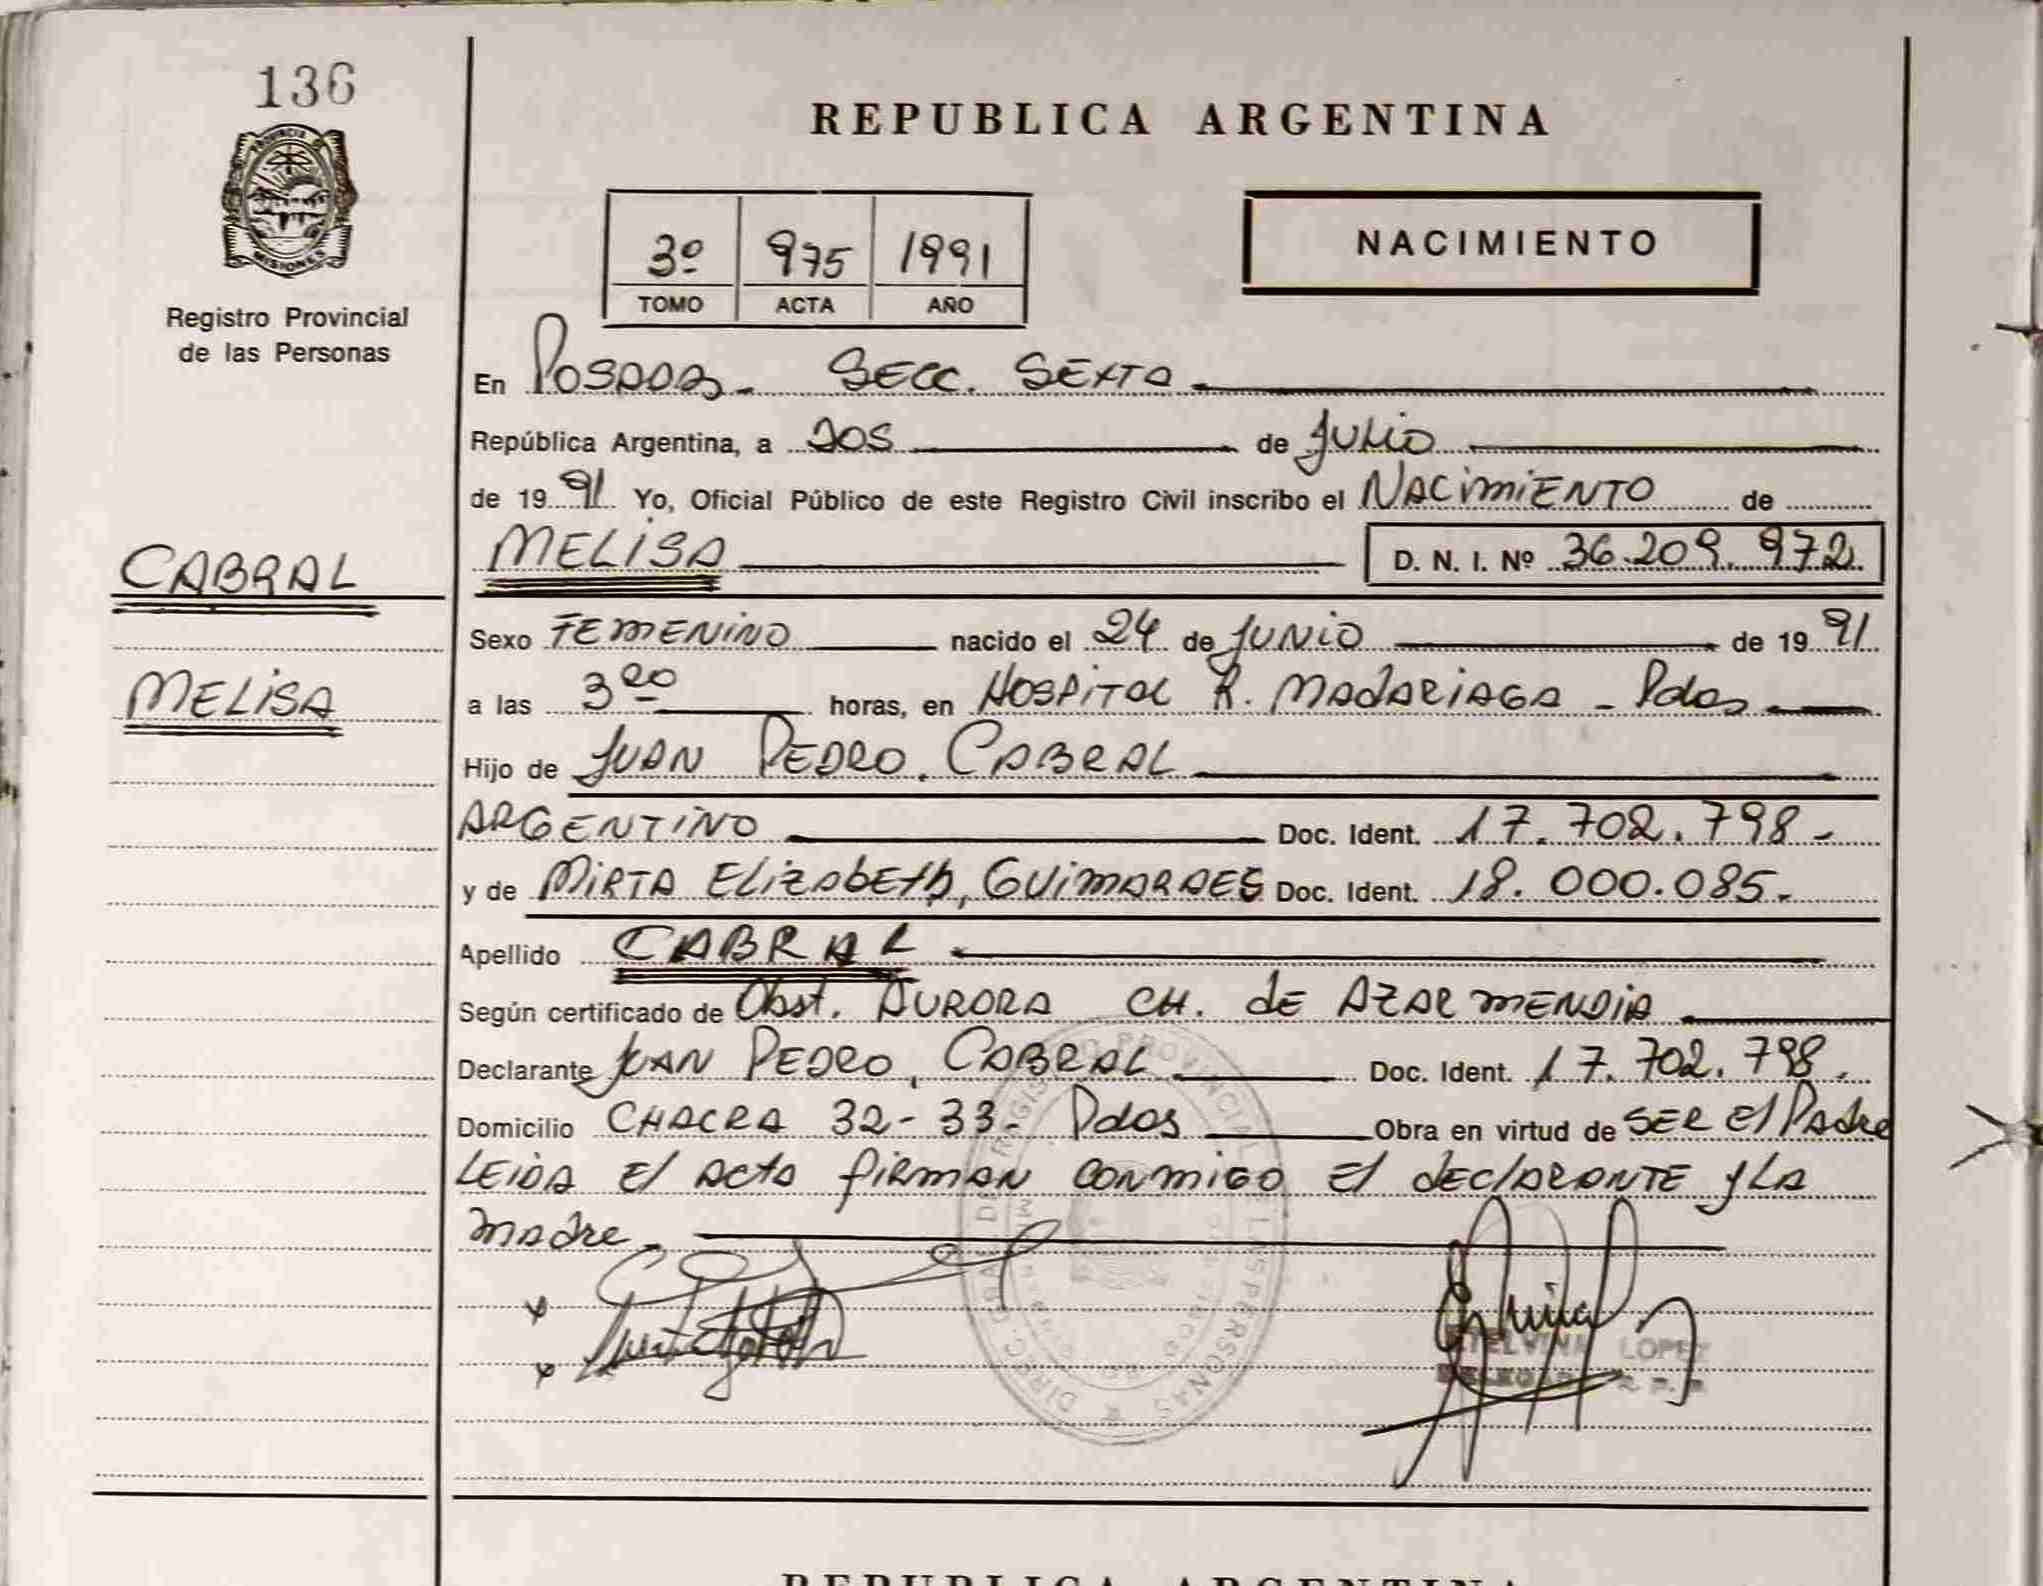 136
PROVINCIA DE
MISIONES
Registro Provincial
de las Personas
CABRAL
MELISA
REPUBLICA ARGENTINA
3º 975 1991
TOMO ACTA AÑO
NACIMIENTO
En Posadas - Secc. Sexta
República Argentina, a Dos de Julio
de 1991 Yo, Oficial Público de este Registro Civil inscribo el Nacimiento de
MELISA D. N. I. Nº 36.209.972
Sexo Femenino nacido el 24 de Junio de 1991
a las 3 20 horas, en Hospital R. Madariaga - Pdas
Hijo de Juan Pedro, Cabral
Argentino Doc. Ident. 17.702.798.-
y de Mirta Elizabeth, Guimaraes Doc. Ident. 18.000.085.-
Apellido CABRAL
Según certificado de Obst. Aurora CH. de Azarmendia
Declarante Juan Pedro, Cabral Doc. Ident. 17.702.798.
Domicilio Chacra 32-33- Pdas Obra en virtud de ser el Padre
Leida el acta firman conmigo el declarante y la
madre.
REGISTRO PROVINCIAL DE LAS PERSONAS
ETELVINA LOPEZ
REPUBLICA ARGENTINA